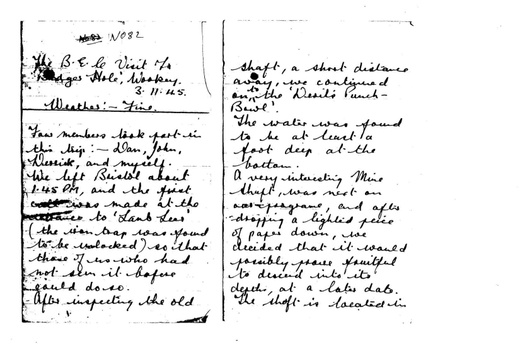 No 82 No 82
The B.E.C Visit To
'Badger Hole', Wookey.
3.11.45.
Weather:- Fine.
Few members took part in
this trip:- Dan, John,
Derrick, and myself.
We left Bristol about
1.45 PM, and the first
was made at the
entrance to 'Lamb Leer'
(the iron trap was found
to be unlocked) so that
those of us who had
not seen it before
could do so.
After inspecting the old
shaft, a short distance
away, we continued
on, to the 'Devil's Punch-
Bowl'.
The water was found
to be at least a
foot deep at the
bottom.
A very interesting Mine
Shaft, was next on
our programe, and after
dropping a lighted piece
of paper down, we
decided that it would
possibly prove fruitful
to descend into its
depths, at a later date.
The shaft is located in